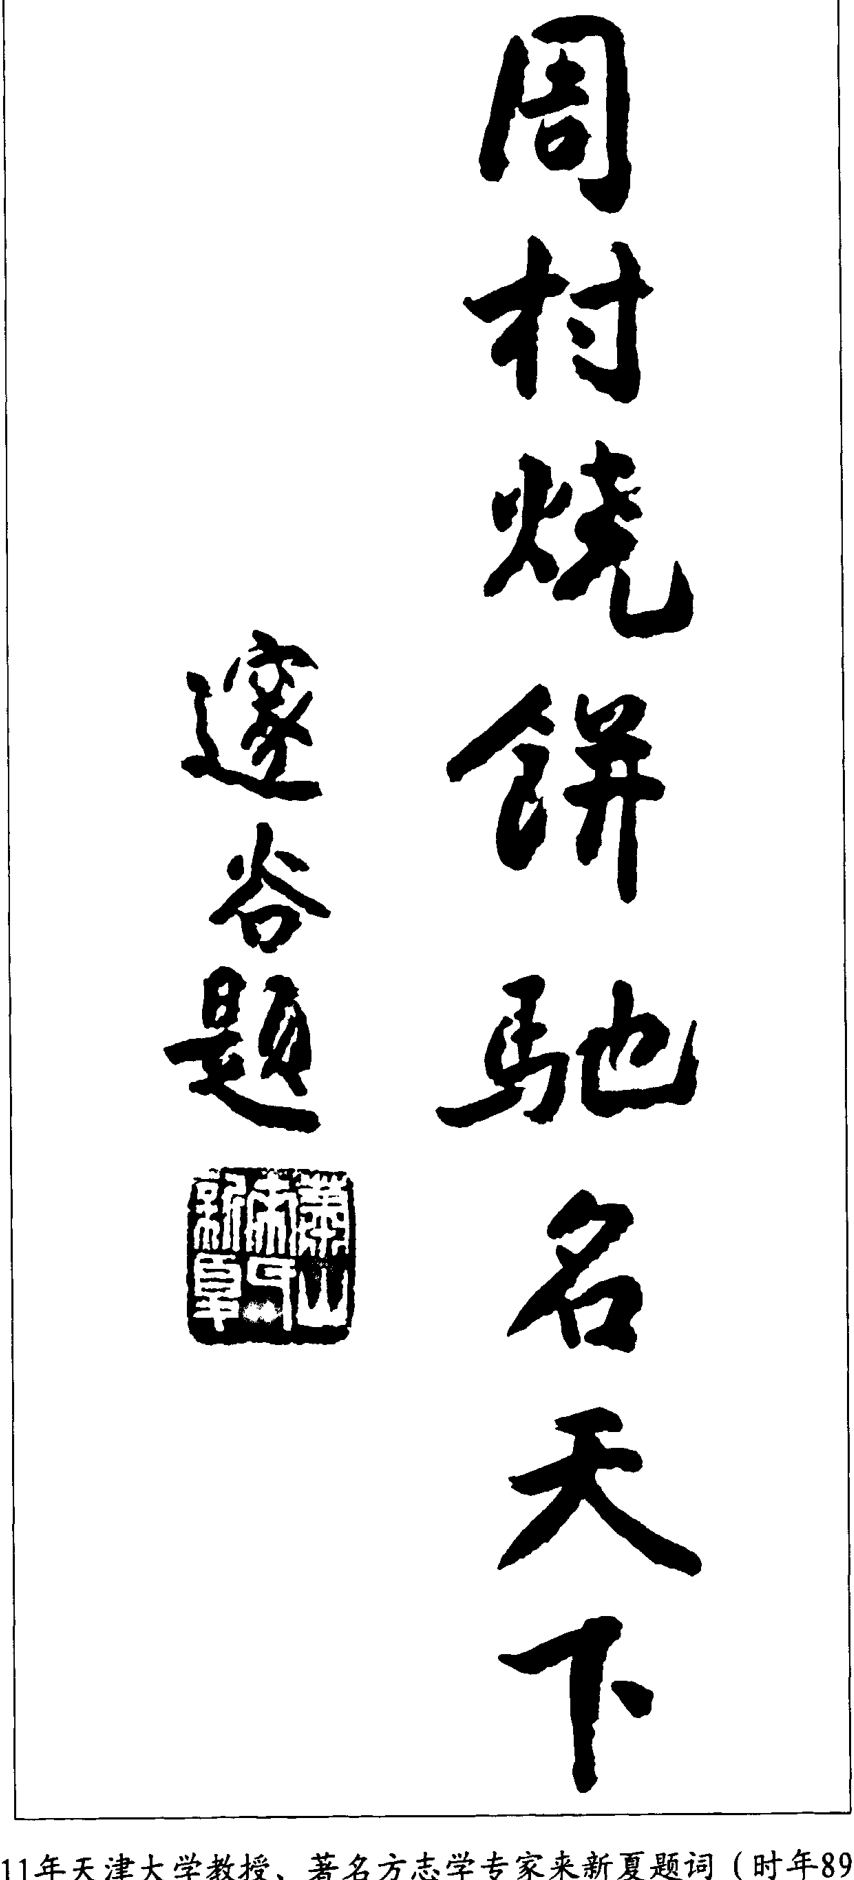 周村烧餅馳名天下
邃谷題
萧山來氏新夏
11年天津大学教授、著名方志学专家来新夏题词（时年89